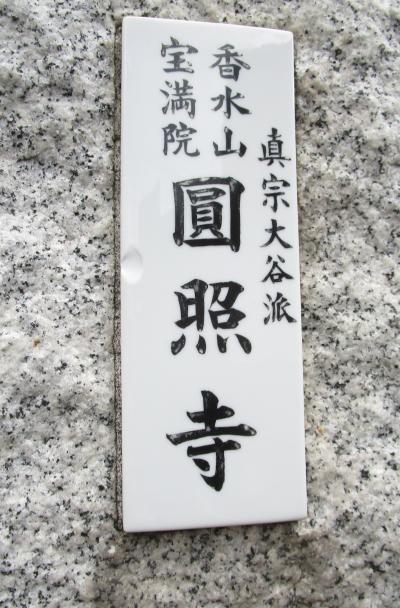 真宗大谷派
香水山
宝満院
圓照寺